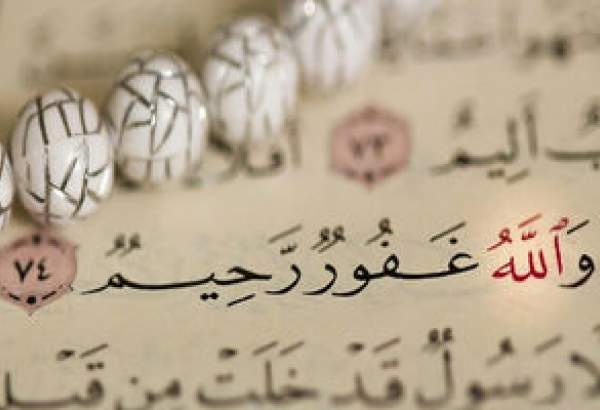 ـبٌ أَلِيمٌ ٧٣ أَفَلَا
وَٱللَّهُ غَفُورٌ رَّحِيمٌ ٧٤
لَّا رَسُولٌ قَدْ خَلَتْ مِن قَبْلِ